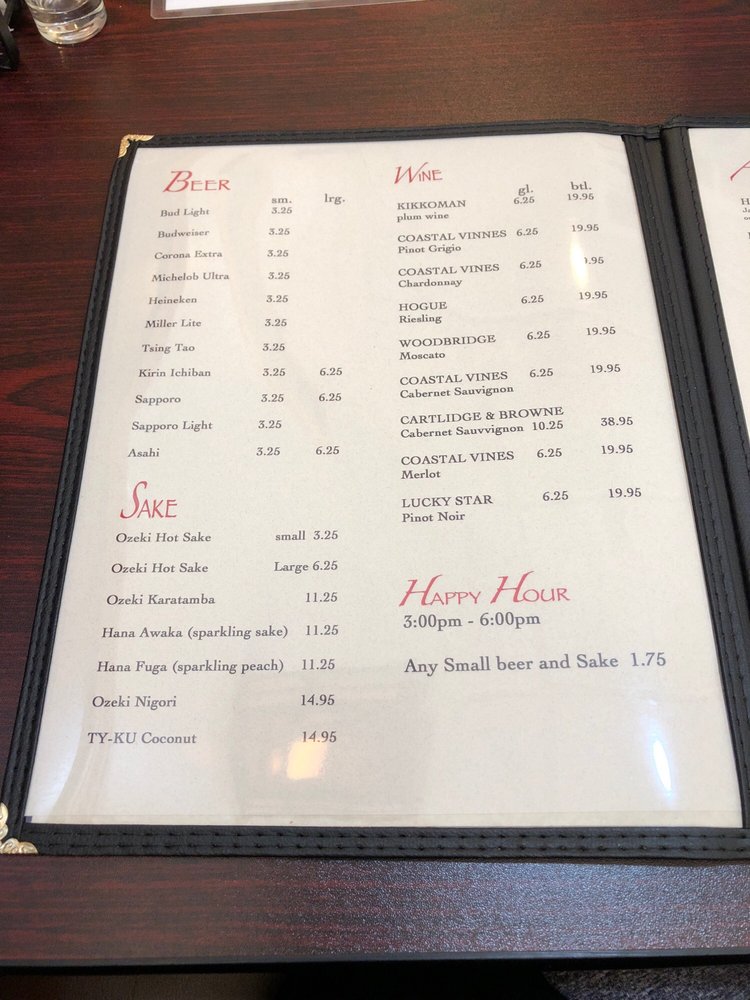 BEER
sm. lrg.
Bud Light 3.25
Budweiser 3.25
Corona Extra 3.25
Michelob Ultra 3.25
Heineken 3.25
Miller Lite 3.25
Tsing Tao 3.25
Kirin Ichiban 3.25 6.25
Sapporo 3.25 6.25
Sapporo Light 3.25
Asahi 3.25 6.25
SAKE
Ozeki Hot Sake small 3.25
Ozeki Hot Sake Large 6.25
Ozeki Karatamba 11.25
Hana Awaka (sparkling sake) 11.25
Hana Fuga (sparkling peach) 11.25
Ozeki Nigori 14.95
TY-KU Coconut 14.95
WINE
gl. btl.
KIKKOMAN 6.25 19.95
plum wine
COASTAL VINNES 6.25 19.95
Pinot Grigio
COASTAL VINES 6.25 9.95
Chardonnay
HOGUE 6.25 19.95
Riesling
WOODBRIDGE 6.25 19.95
Moscato
COASTAL VINES 6.25 19.95
Cabernet Sauvignon
CARTLIDGE & BROWNE
Cabernet Sauvvignon 10.25 38.95
COASTAL VINES 6.25 19.95
Merlot
LUCKY STAR 6.25 19.95
Pinot Noir
HAPPY HOUR
3:00pm - 6:00pm
Any Small beer and Sake 1.75